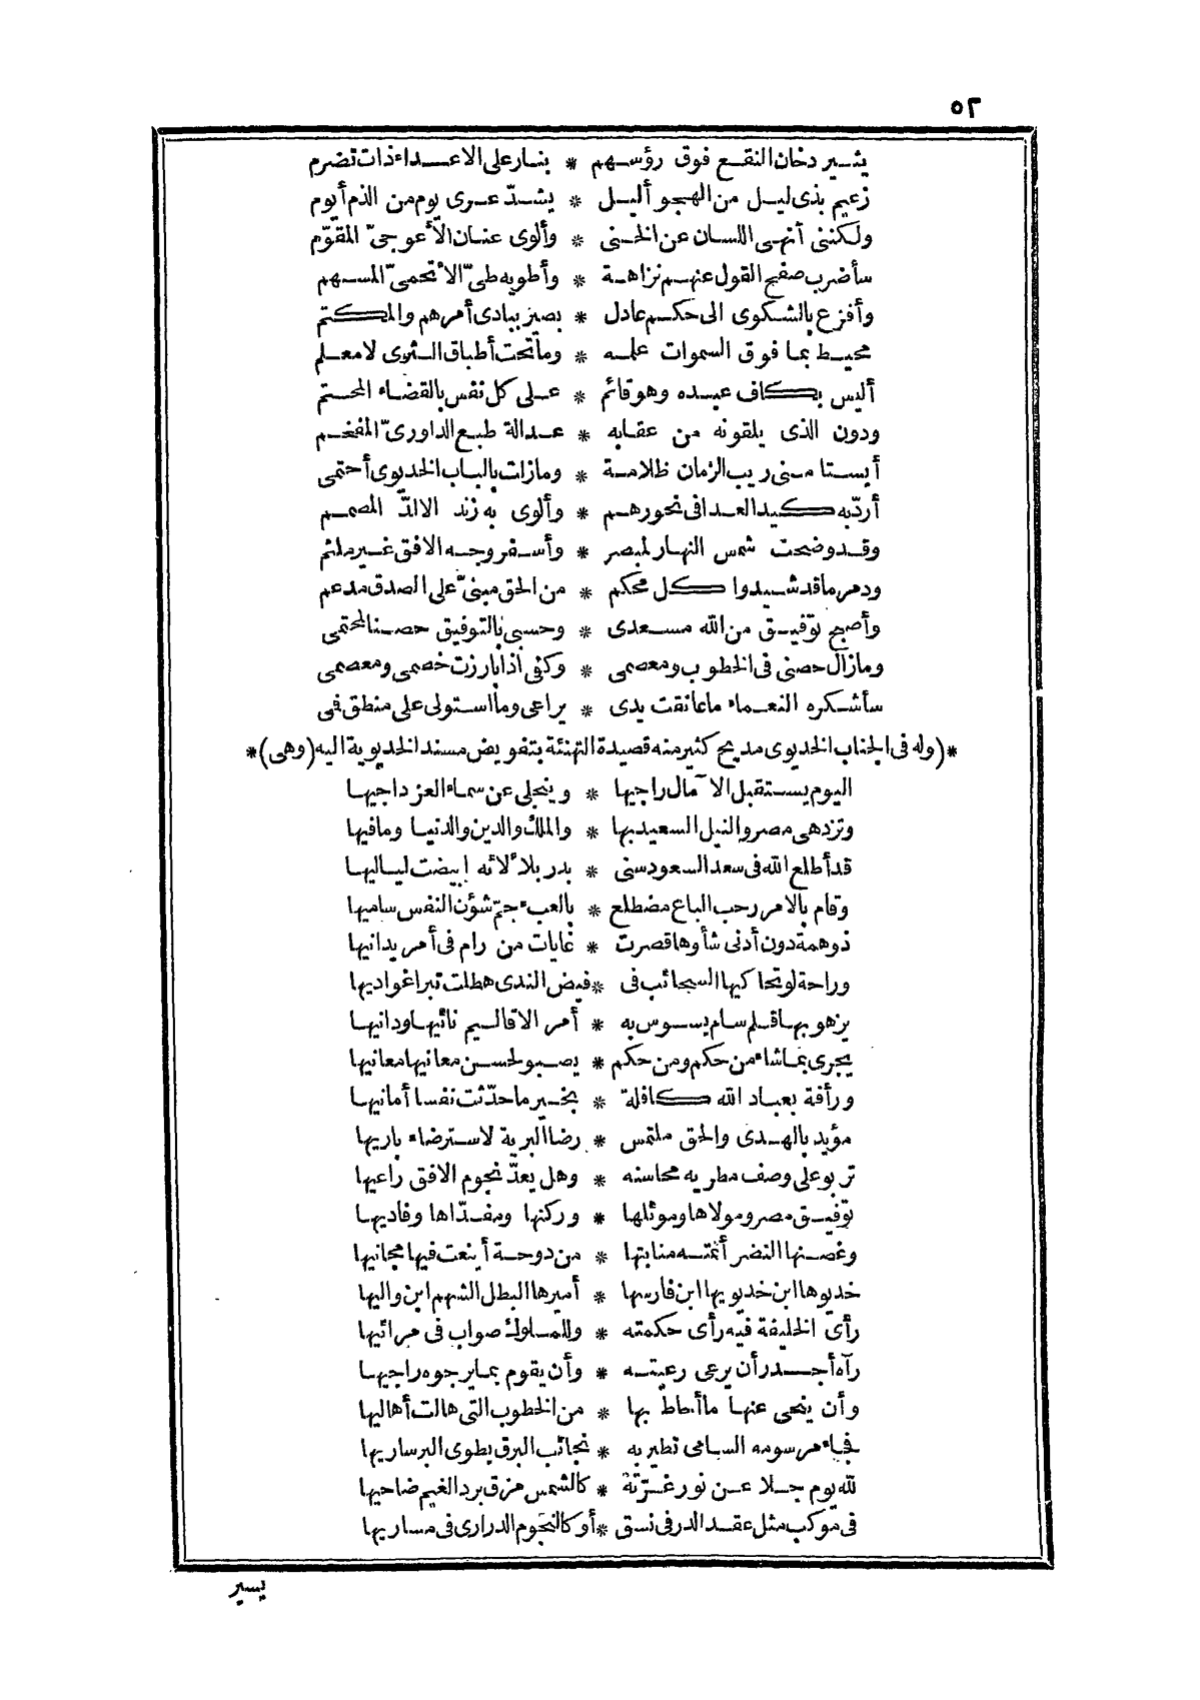 ٥٢
يثير دخان النقع فوق رؤسهم * بنار على الاعداء ذات تضرم
زعيم بذى ليل من الهجو أليل * يشدّ عرى يوم من الذم أيوم
ولكننى أنهى اللسان عن الخنى * وألوى عنان الأعوجىّ المقوّم
سأضرب صفح القول عنهم نزاهة * وأطويه طىّ الأتحمىّ المسهم
وأفزع بالشكوى الى حكم عادل * بصير ببادى أمرهم والمكتم
محيط بما فوق السموات علمه * وما تحت أطباق الثرى لا معلم
أليس بكاف عبده وهو قائم * على كل نفس بالقضاء المحتم
ودون الذى يلقونه من عقابه * عدالة طبع الداورىّ المفخم
أيستا منى ريب الزمان ظلامة * ومازلت بالباب الخديوى أحتمى
أردّ به كيد العدا فى نحورهم * وألوى به زند الالدّ المصمم
وقد وضحت شمس النهار لمبصر * وأسفر وجه الافق غير ملثم
ودمر ما قد شيدوا كل محكم * من الحق مبنىّ على الصدق مدعم
وأصبح توفيق من الله مسعدى * وحسبى بالتوفيق حصنا لمحتمى
ومازال حصنى فى الخطوب ومعصمى * وكفى اذا بارزت خصمى ومعصمى
سأشكره النعماء ما عانقت يدى * يراعى وما استولى على منطق فى
*(وله فى الجناب الخديوى مديح كثير منه قصيدة التهنئة بتفويض مسند الخديوية اليه (وهى)*
اليوم يستقبل الآمال راجيها * وينجلى عن سماء العز داجيها
وتزدهى مصر والنيل السعيد بها * والملك والدين والدنيا ومافيها
قد أطلع الله فى سعد السعود سنى * بدر بلألائه ابيضت لياليها
وقام بالامر رحب الباع مضطلع * بالعبء جمّ شؤن النفس ساميها
ذو همة دون أدنى شأوها قصرت * غايات من رام فى أمر يدانيها
وراحة لو تحاكيها السحائب فى * فيض الندى هطلت تبرا غواديها
يزهو بها قلم سام يسوس به * أمر الاقاليم نائيها ودانيها
يجرى بما شاء من حكم ومن حكم * يصبو لحسن معانيها معانيها
ورأفة بعباد الله كافلة * بخير ما حدّثت نفسا أمانيها
مؤيد بالهدى والحق ملتمس * رضا البرية لاسترضاء باريها
تربو على وصف مطريه محاسنه * وهل يعدّ نجوم الافق راعيها
توفيق مصر ومولاها وموئلها * وركنها ومفدّاها وفاديها
وغصنها النضر أنمته منابتها * من دوحة أينعت فيها مجانيها
خديوها ابن خديويها ابن فارسها * أميرها البطل الشهم ابن واليها
رأى الخليفة فيه رأى حكمته * وللملوك صواب فى مرائيها
رآه أجدر أن يرعى رعيته * وأن يقوم بما يرجوه راجيها
وأن ينحى عنها ما أحاط بها * من الخطوب التى هالت أهاليها
فجاء مرسومه السامى تطير به * نجائب البرق يطوى البر ساريها
لله يوم جلا عن نور غرّته * كالشمس مزق برد الغيم ضاحيها
فى موكب مثل عقد الدر فى نسق * أو كالنجوم الدرارى فى مساريها
يسير